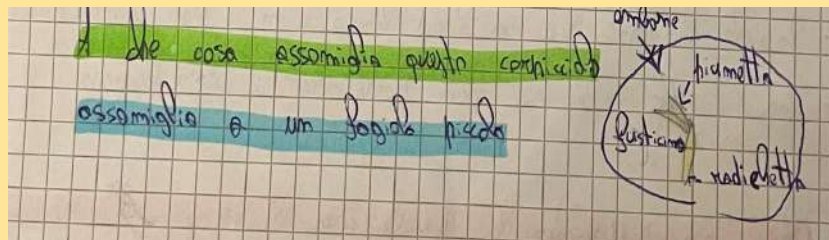 A che cosa assomiglia questo
assomiglia a un fagiolo piccolo
piumetta
fusticino
radichetta